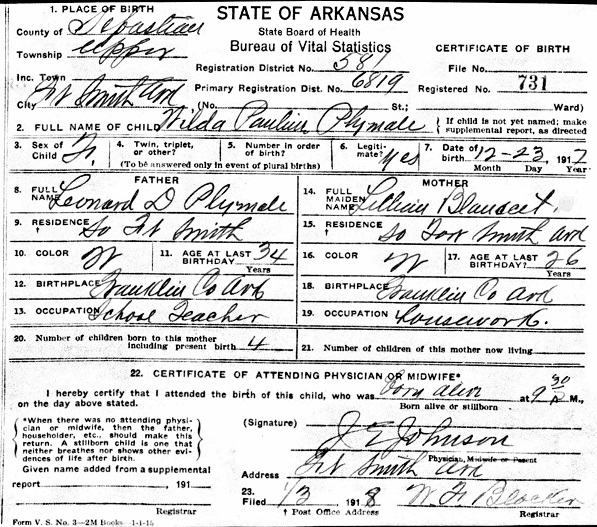 STATE OF ARKANSAS
State Board of Health
Bureau of Vital Statistics
CERTIFICATE OF BIRTH
1. PLACE OF BIRTH
County of Sebastian
Township Upper
Inc. Town
City Ft Smith Ark
Registration District No. 581
Primary Registration Dist. No. 6819
File No.
Registered No. 731
(No. St.; Ward)
2. FULL NAME OF CHILD Wilda Pauline Plymale { If child is not yet named; make supplemental report, as directed
3. Sex of Child F.
4. Twin, triplet, or other?
5. Number in order of birth?
(To be answered only in event of plural births)
6. Legitimate? yes
7. Date of birth. 12-23, 1917
Month Day Year
FATHER
8. FULL NAME Leonard D Plymale
9. RESIDENCE So Ft Smith
10. COLOR W
11. AGE AT LAST BIRTHDAY 34 Years
12. BIRTHPLACE Franklin Co Ark
13. OCCUPATION School Teacher
MOTHER
14. FULL MAIDEN NAME Lillian
15. RESIDENCE So Fort Smith Ark
16. COLOR W
17. AGE AT LAST BIRTHDAY? 26 Years
18. BIRTHPLACE Franklin Co Ark
19. OCCUPATION Housework.
20. Number of children born to this mother including present birth 4
21. Number of children of this mother now living
22. CERTIFICATE OF ATTENDING PHYSICIAN OR MIDWIFE*
I hereby certify that I attended the birth of this child, who was born alive at 9 30 A M., on the day above stated.
Born alive or stillborn
*When there was no attending physician or midwife, then the father, householder, etc., should make this return. A stillborn child is one that neither breathes nor shows other evidences of life after birth.
(Signature) J E Johnson
Physician, Midwife or Parent
Given name added from a supplemental report , 191
Registrar
Address Ft Smith Ark
23. Filed 1/3 1918
† Post Office Address
Registrar
Form V. S. No. 3—2M Books—1-1-15